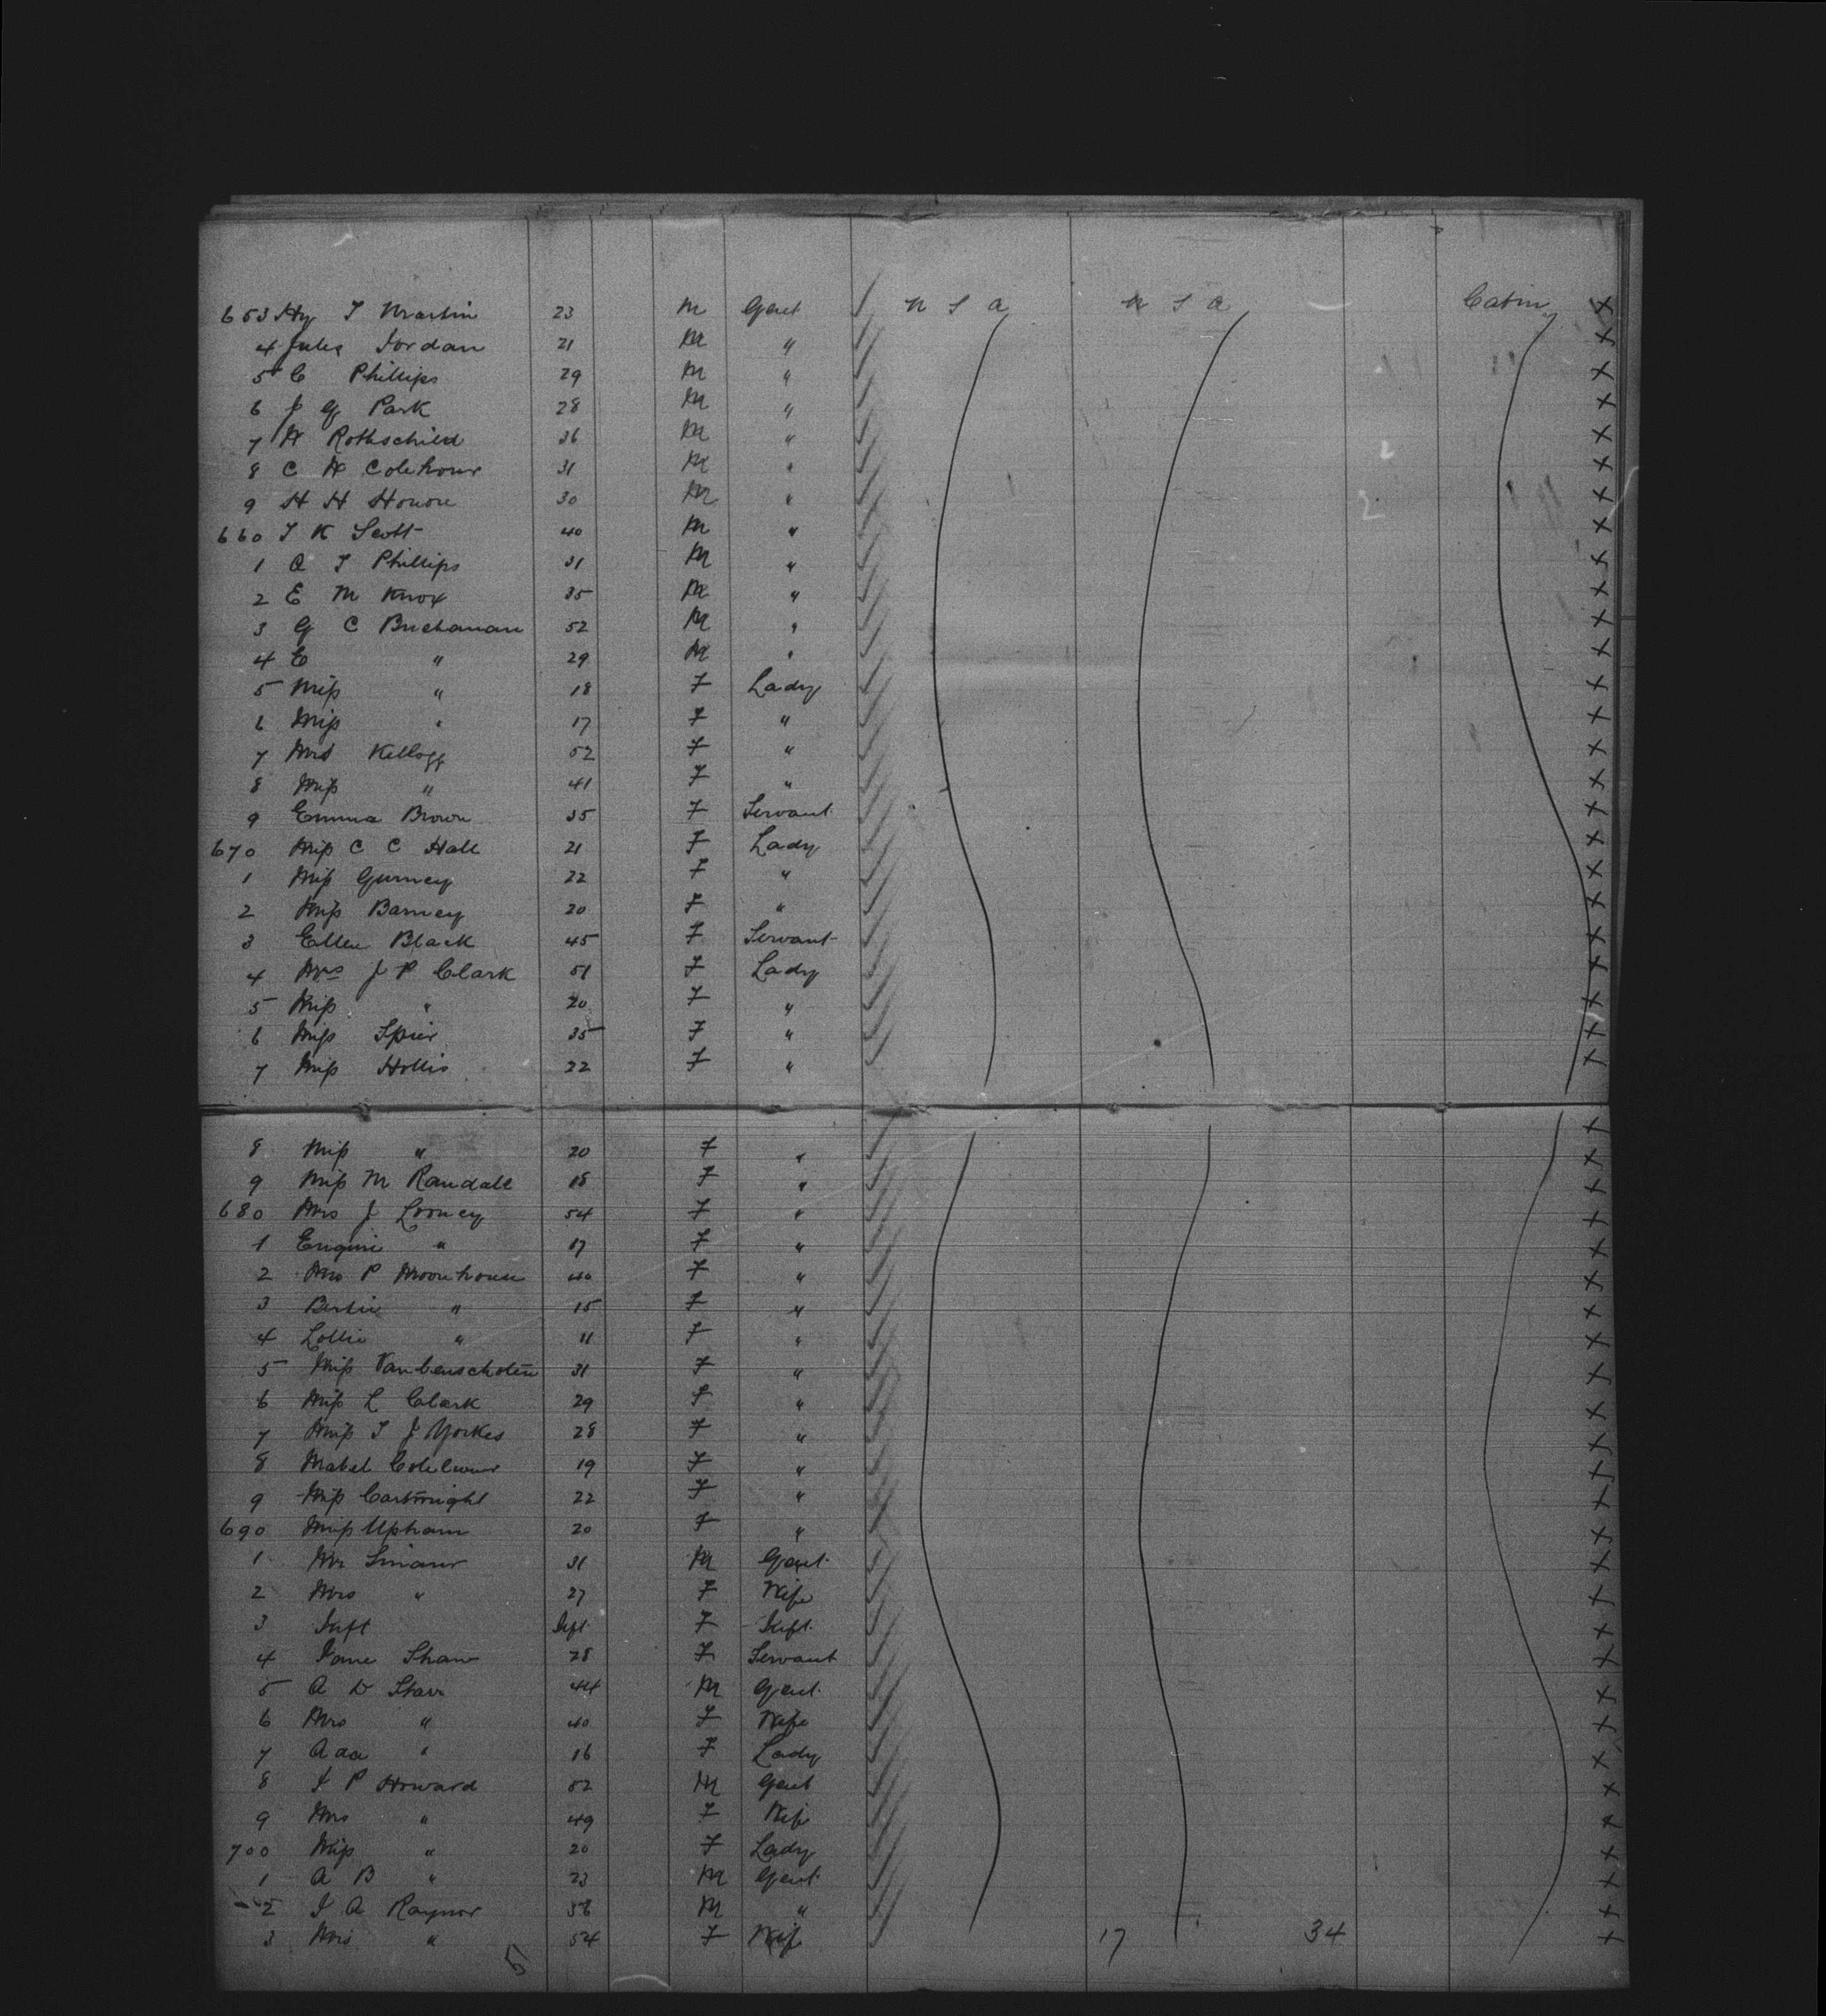 653 Hy T Martin 23 M Gent U S A U S A Cabin X
4 Jules Jordan 21 M " X
5 C Phillips 29 M " X
6 J G Park 28 M " X
7 W Rothschild 36 M " X
8 C W Colehour 31 M " X
9 H H Honore 30 M " X
660 T K Scott 40 M " X
1 A T Phillips 31 M " X
2 E M Knox 35 M " X
3 G C Buchanan 52 M " X
4 E " 29 M " X
5 Miss " 18 F Lady X
6 Miss " 17 F " X
7 Mrs Kellogg 52 F " X
8 Miss " 41 F " X
9 Emma Brown 35 F Servant X
670 Miss C C Hall 21 F Lady X
1 Miss Gurney 22 F " X
2 Miss Barney 20 F " X
3 Ellen Black 45 F Servant X
4 Mrs J P Clark 51 F Lady X
5 Miss " 20 F " X
6 Miss Spier 35 F " X
7 Miss Hollis 22 F " X
8 Miss " 20 F " X
9 Miss M Randall 18 F " X
680 Mrs J Looney 54 F " X
1 " 17 F " X
2 Mrs P Moorehouse 40 F " X
3 Bertie " 15 F " X
4 Lollie " 11 F " X
5 Miss Vanbenschoten 31 F " X
6 Miss L Clark 29 F " X
7 Miss T J Yorkes 28 F " X
8 Mabel 19 F " X
9 Miss Cartwright 22 F " X
690 Miss Upham 20 F " X
1 Mr 31 M Gent X
2 Mrs " 27 F Wife X
3 Inft Inft F Inft X
4 Jane Shaw 28 F Servant X
5 A D Starr 44 M Gent X
6 Mrs " 40 F Wife X
7 Ada " 16 F Lady X
8 J P Howard 52 M Gent X
9 Mrs " 49 F Wife X
700 Miss " 20 F Lady X
1 A B " 23 M Gent X
2 J A Raynor 58 M " X
3 Mrs " 54 F Wife 17 34 X